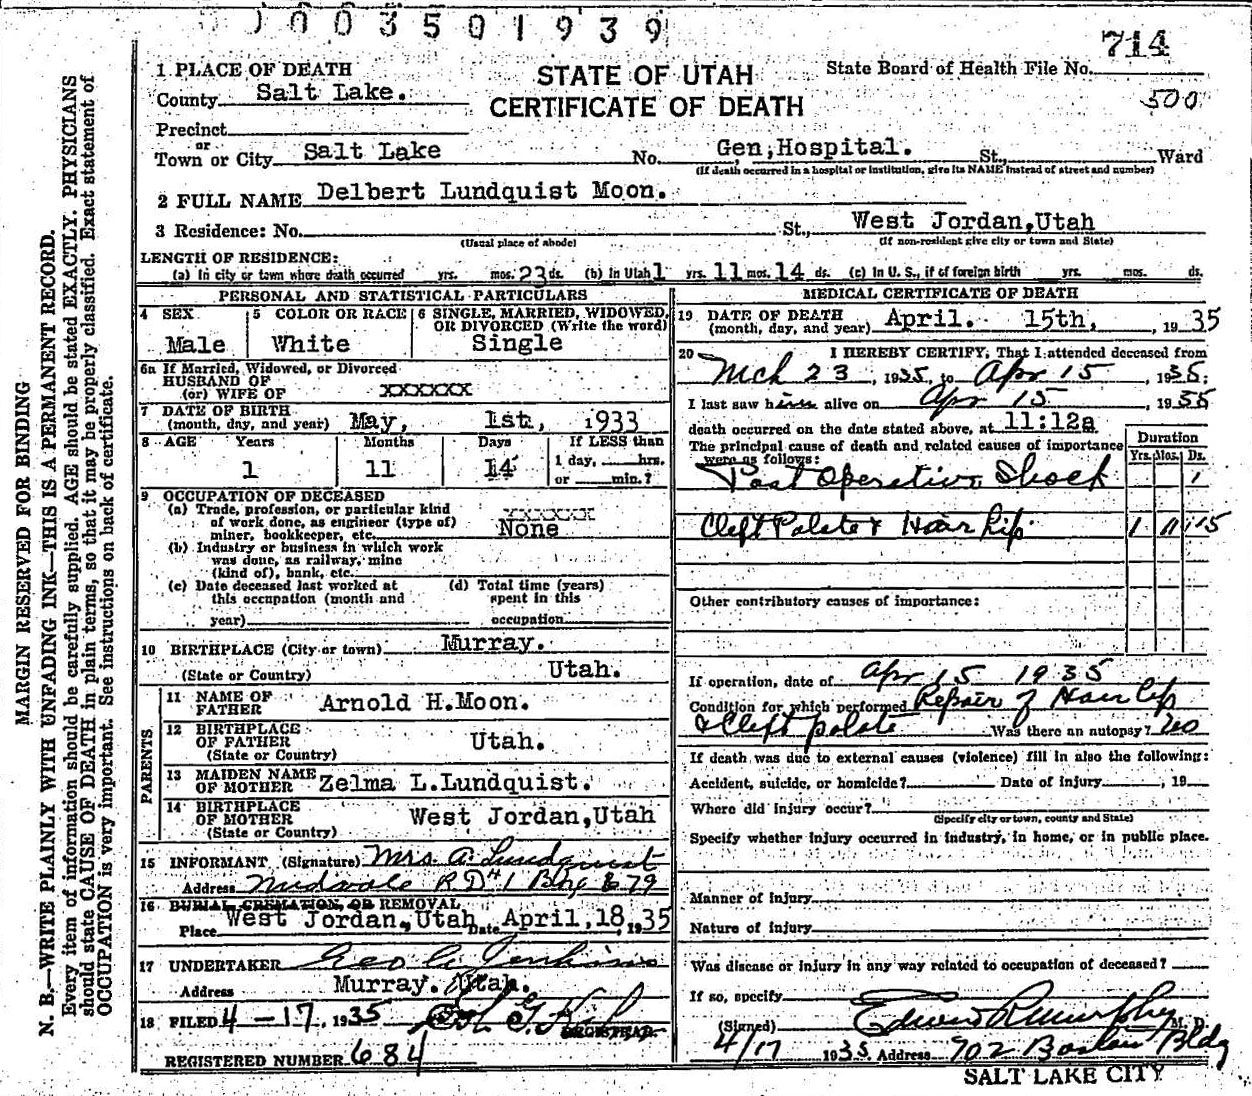 003501939
714
1 PLACE OF DEATH
STATE OF UTAH
State Board of Health File No.
County Salt Lake.
CERTIFICATE OF DEATH
500
Precinct
or
Town or City Salt Lake No. Gen, Hospital. St., Ward
(If death occurred in a hospital or institution, give its NAME instead of street and number)
2 FULL NAME Delbert Lundquist Moon.
3 Residence: No. St., West Jordan, Utah
(Usual place of abode) (If non-resident give city or town and State)
LENGTH OF RESIDENCE:
(a) In city or town where death occurred yrs. mos. 23 ds. (b) In Utah 1 yrs. 11 mos. 14 ds. (c) In U. S., if of foreign birth yrs. mos. ds.
PERSONAL AND STATISTICAL PARTICULARS
4 SEX
Male
5 COLOR OR RACE
White
6 SINGLE, MARRIED, WIDOWED, OR DIVORCED (Write the word)
Single
6a If Married, Widowed, or Divorced
HUSBAND OF
(or) WIFE OF xxxxxx
7 DATE OF BIRTH
(month, day, and year) May, 1st, 1933
8 AGE Years Months Days If LESS than
1 11 14 1 day, hrs.
or min.?
9 OCCUPATION OF DECEASED
(a) Trade, profession, or particular kind xxxxxx
of work done, as engineer (type of)
miner, bookkeeper, etc. None
(b) Industry or business in which work
was done, as railway, mine
(kind of), bank, etc.
(c) Date deceased last worked at (d) Total time (years)
this occupation (month and spent in this
year) occupation
10 BIRTHPLACE (City or town) Murray.
(State or Country) Utah.
PARENTS
11 NAME OF
FATHER Arnold H. Moon.
12 BIRTHPLACE
OF FATHER Utah.
(State or Country)
13 MAIDEN NAME
OF MOTHER Zelma L. Lundquist.
14 BIRTHPLACE
OF MOTHER West Jordan, Utah
(State or Country)
15 INFORMANT (Signature) Mrs A. Lundquist
Address Midvale R D # 1 Bx 679
16 BURIAL, CREMATION, OR REMOVAL
Place West Jordan, Utah Date April, 18, 1935
17 UNDERTAKER Geo Jenkins
Address Murray. Utah.
18 FILED 4-17, 1935
REGISTRAR.
REGISTERED NUMBER 684
MEDICAL CERTIFICATE OF DEATH
19 DATE OF DEATH
(month, day, and year) April. 15th, 1935
20 I HEREBY CERTIFY, That I attended deceased from
Mch 23, 1935 to Apr 15, 1935;
I last saw him alive on Apr 15 1935
death occurred on the date stated above, at 11:12a.
The principal cause of death and related causes of importance
were as follows:
Duration
Yrs. Mos. Ds.
Post Operative Shock 1
Cleft Palate & Hair Lip. 1 11 15
Other contributory causes of importance:
If operation, date of Apr 15 1935
Condition for which performed Repair of Hair lip
& Cleft palate Was there an autopsy? no
If death was due to external causes (violence) fill in also the following:
Accident, suicide, or homicide? Date of injury, 19
Where did injury occur?
(Specify city or town, county and State)
Specify whether injury occurred in industry, in home, or in public place.
Manner of injury
Nature of injury
Was disease or injury in any way related to occupation of deceased?
If so, specify
(Signed) Edwin R Murphy M. D.
4/17 1935 Address 902 Boston Bldg
SALT LAKE CITY
MARGIN RESERVED FOR BINDING
N. B.—WRITE PLAINLY WITH UNFADING INK—THIS IS A PERMANENT RECORD.
Every item of information should be carefully supplied. AGE should be stated EXACTLY. PHYSICIANS
should state CAUSE OF DEATH in plain terms, so that it may be properly classified. Exact statement of
OCCUPATION is very important. See instructions on back of certificate.